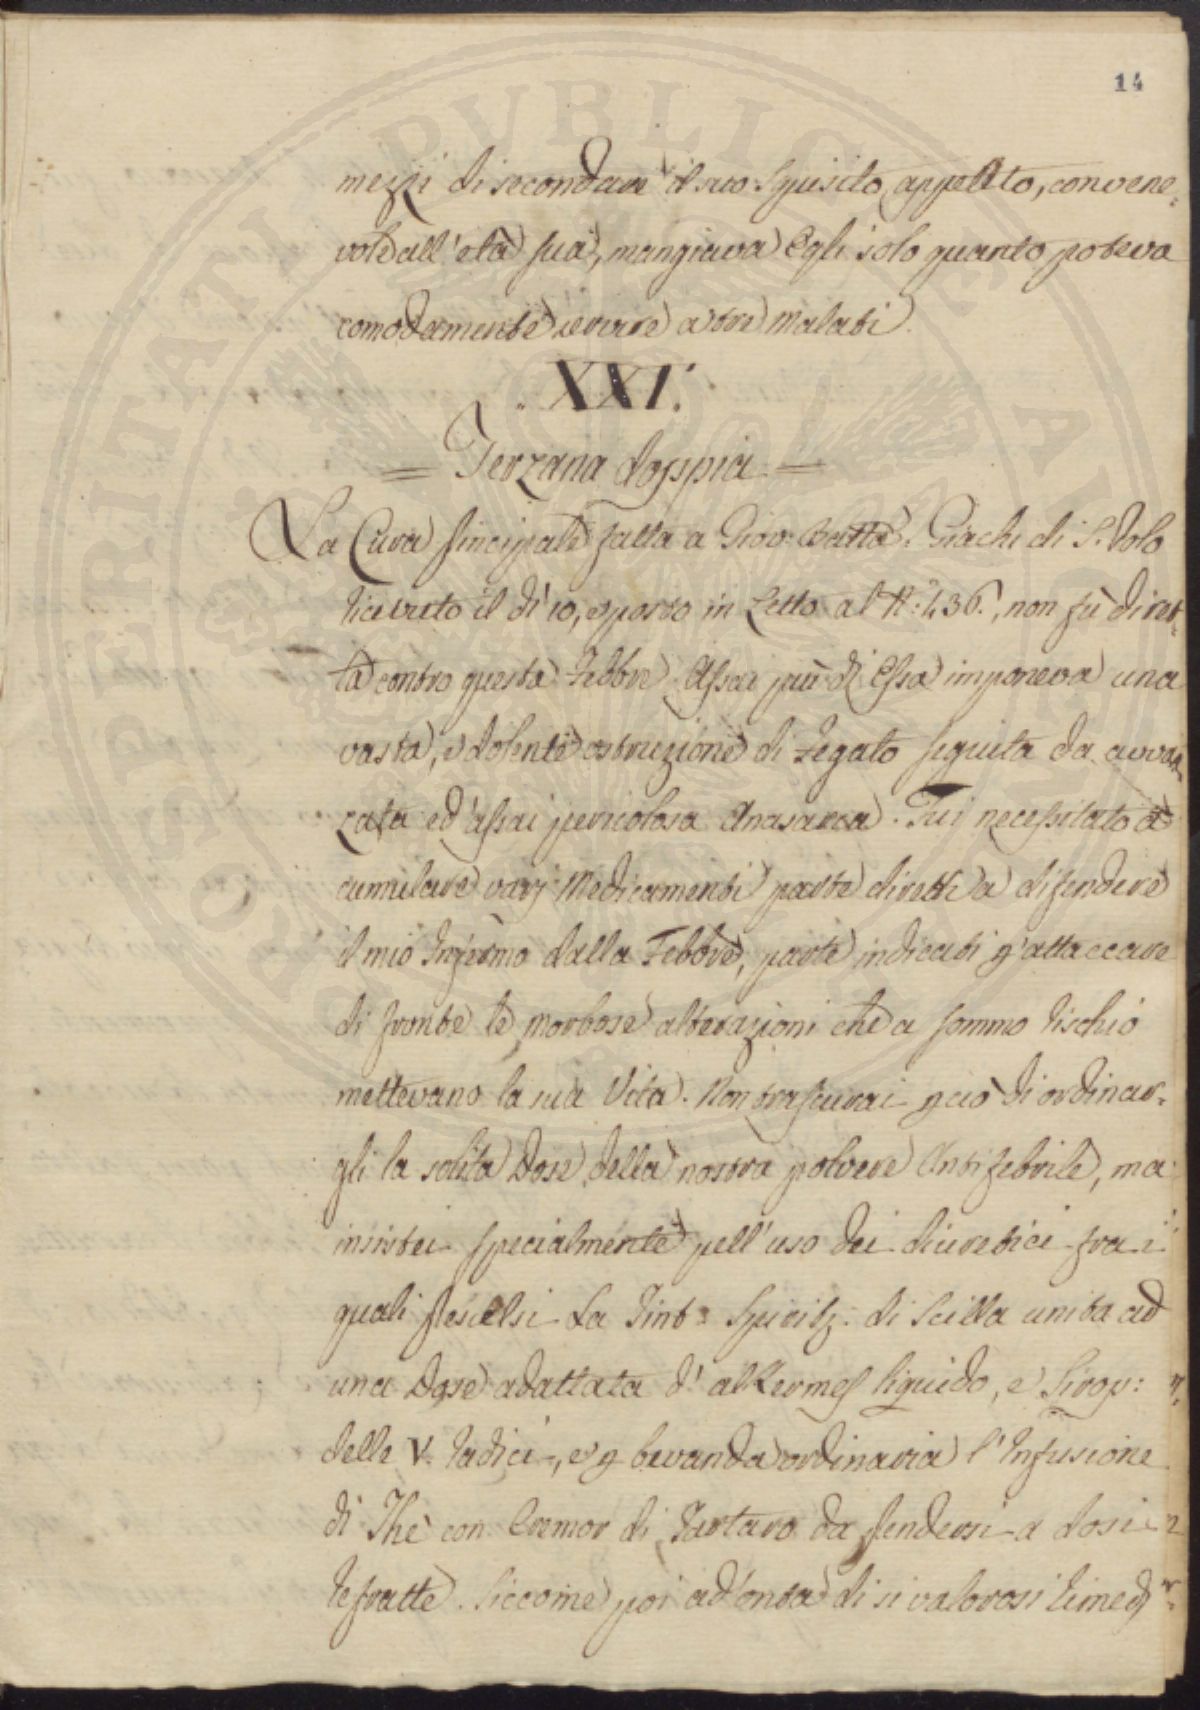 14
mezzi di secondare il suo squisito appetito, convene-
vole all'età sua, mangiava Egli solo quanto poteva
comodamente servire a tre malati.
.XXI.
= Terzana doppia =
La Cura principale fatta a Giov: Batta: Giachi di S. Polo
ricevuto il dì 10, e posto in Letto al N: 436., non fù diret-
ta contro questa Febbre. Assai più di Essa imponeva una
vasta, e dolente ostruzione di Fegato seguita da avvan
zata ed' assai pericolosa Anasarca. Fui necessitato a
cumulare varj Medicamenti parte diretti a difendere
il mio Infermo dalla Febbre, parte indicati p' attaccare
di fronte le morbose alterazioni che a sommo rischio
mettevano la sua Vita. Non trascurai p ciò di ordinar-
gli la solita Dose della nostra polvere Antifebrile, ma
insistei specialmente pell'uso dei diuretici fra i
quali prescelsi La Tint: Spiritz: di Scilla unita ad
una Dose adattata d' alKermes liquido, e Sirop:
delle V. radici, e p bevanda ordinaria l'Infusione
di Thè con Cremor di Tartaro da prendersi a dosi
refratte. Siccome poi ad onta di si valorosi rimedj
PROSPERITATI PUBLICAE AUGENDAE